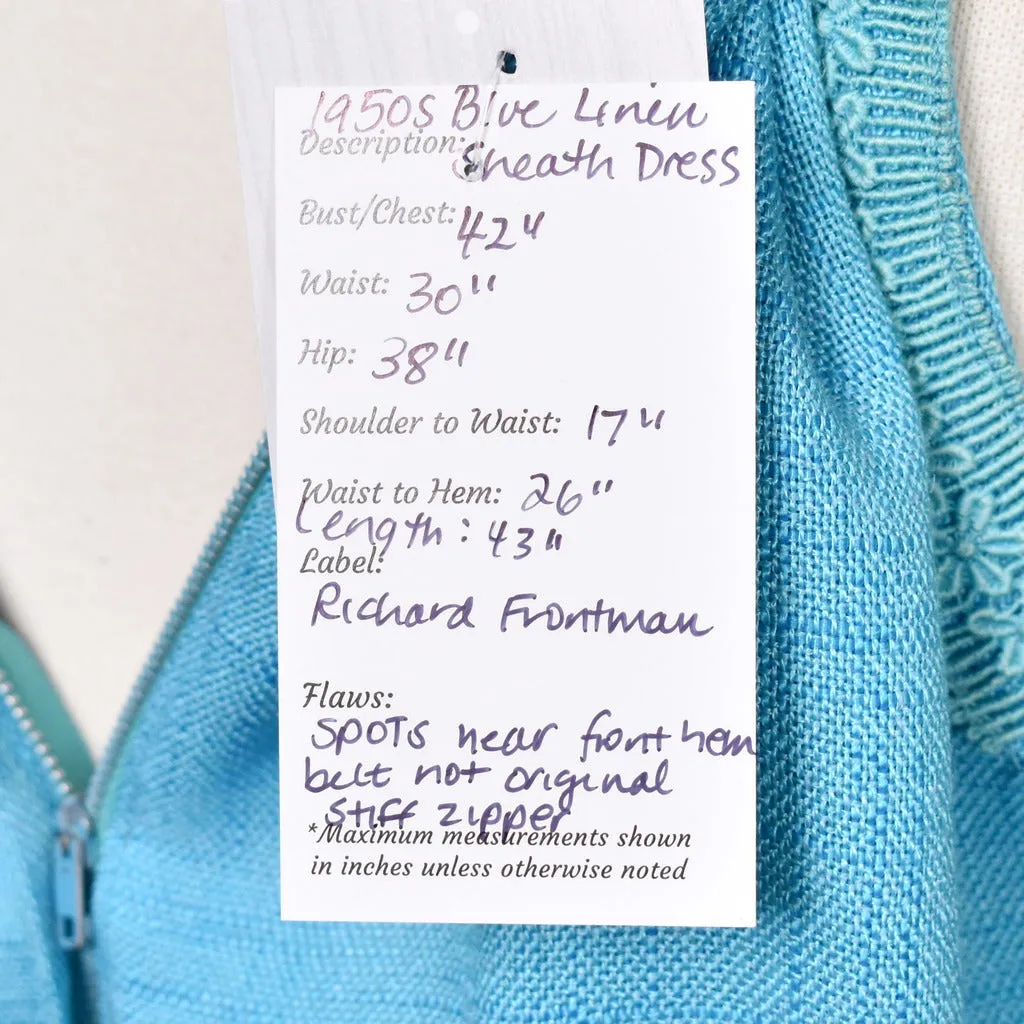 1950s Blue Linen
Description: Sheath Dress
Bust/Chest: 42"
Waist: 30"
Hip: 38"
Shoulder to Waist: 17"
Waist to Hem: 26"
Length: 43"
Label:
Richard Frontman
Flaws:
SPOTS near front hem
belt not original
stiff zipper
*Maximum measurements shown
in inches unless otherwise noted